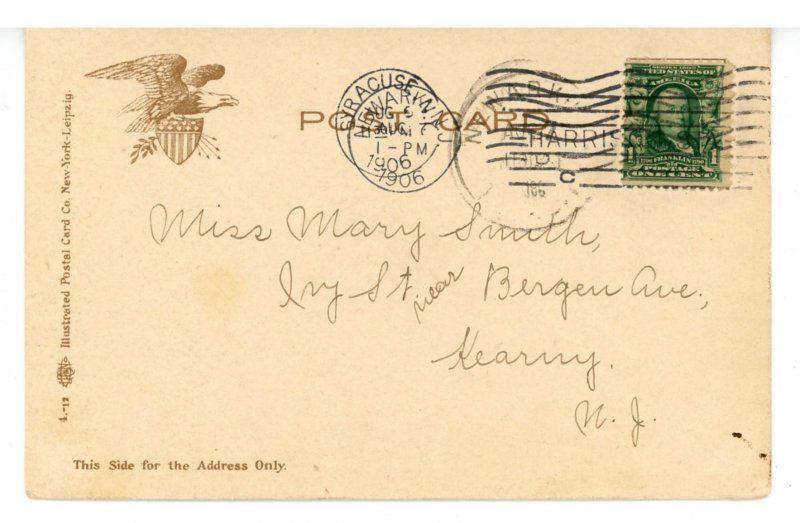 POST CARD
SYRACUSE
NEWARK, N.J.
1-PM
1906
1906
NEWARK, N.
HARRIS
C
SERIES 1902
UNITED STATES OF
AMERICA
1706 FRANKLIN 1790
POSTAGE
ONE CENT
Miss Mary Smith,
Ivy St near Bergen Ave.,
Kearny.
N. J.
4.-12 Illustrated Postal Card Co. New-York-Leipzig.
This Side for the Address Only.